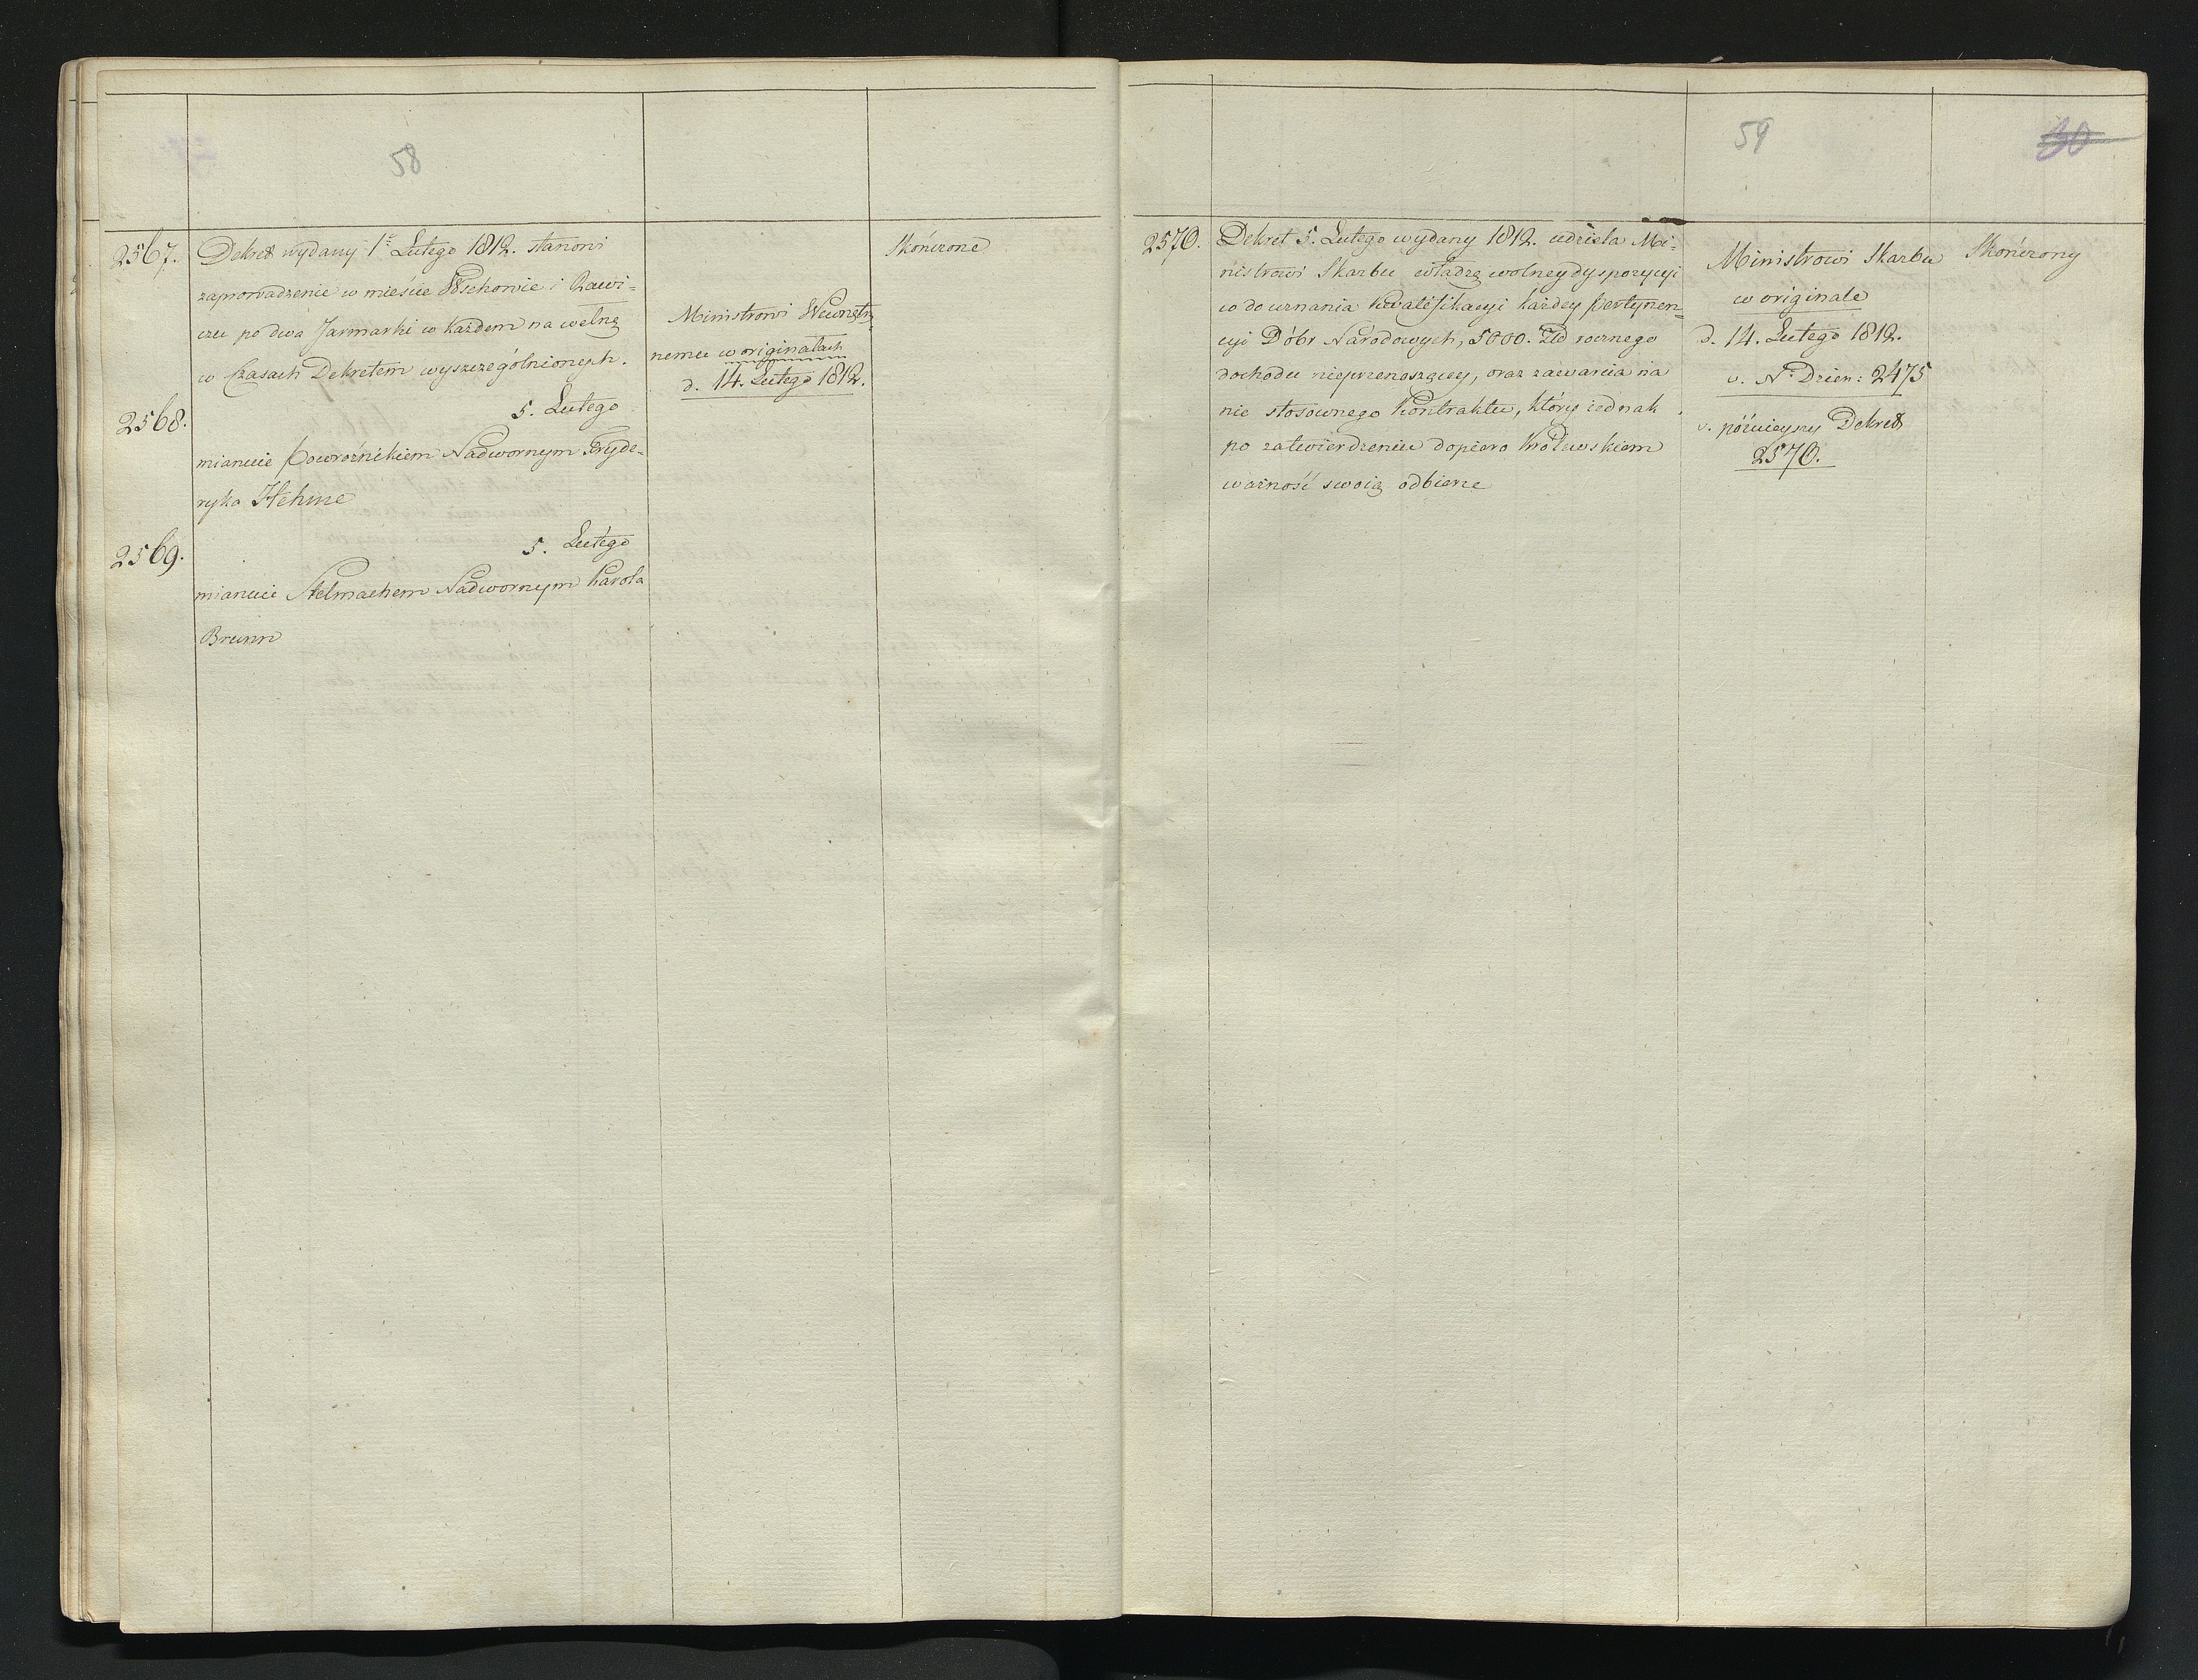 58
2567. Dekret wydany 1º Lutego 1812. stanowi
zaprowadzenie w mieście Wschowie i Rawi=
czu po dwa Jarmarki w każdem na wełnę
w Czasach Dekretem wyszczególnionych.
Ministrowi Wewnętrz
nemu w originałach
d. 14. Lutego 1812.
Skończone
2568.
5. Lutego
mianuie Powroźnikiem Nadwornym Fryde=
ryka Hehme
2569.
5. Lutego
mianuie Stelmachem Nadwornym Karola
Brunn
59
60
2570. Dekret 5. Lutego wydany 1812. udziela Mi=
nistrowi Skarbu władzę wolney dyspozycyi
co do uznania kwalifikacyi każdey pertynen=
cyi Dóbr Narodowych, 5000. Złd rocznego
dochodu nieprzenoszącey, oraz zawarcia na
nie stosownego Kontraktu, który iednak
po zatwierdzeniu dopiero Królewskiem
ważność swoią odbierze
Ministrowi Skarbu
w originale
d. 14. Lutego 1812.
v. Nº Dzien: 2475
v. późnieyszy Dekret
2570.
Skończony